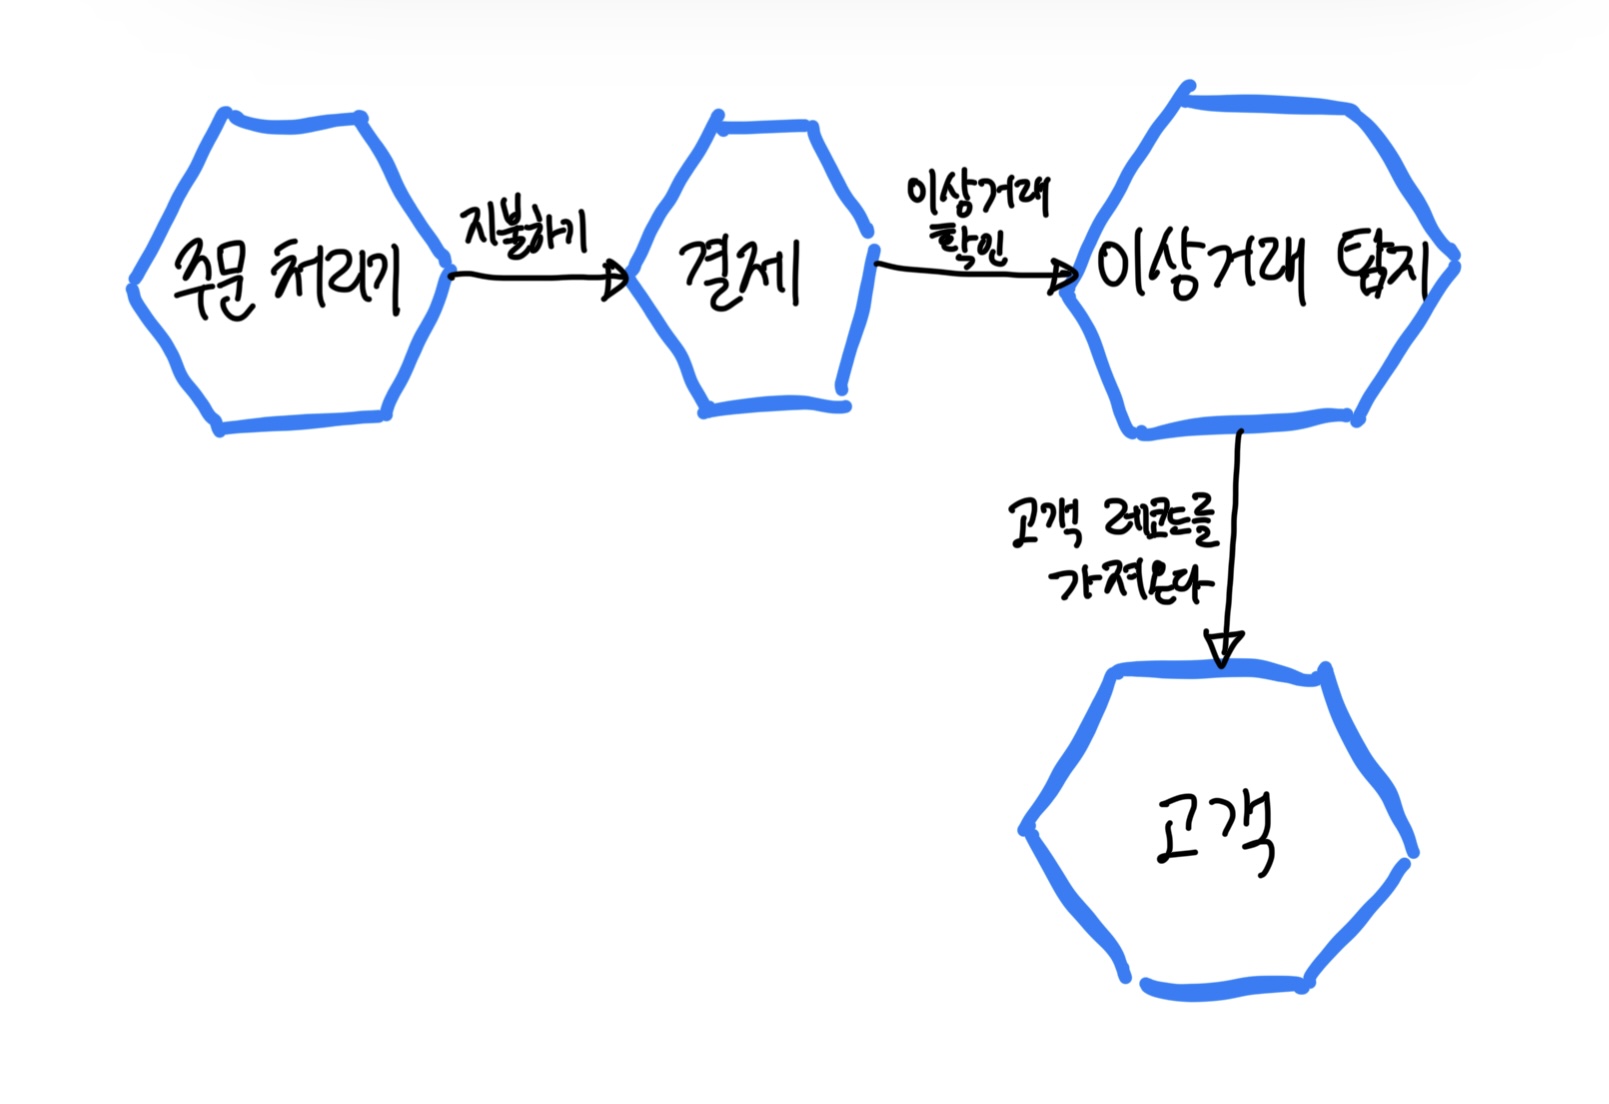 주문 처리기
지불하기
결제
이상거래
확인
이상거래 탐지
고객 레코드를
가져온다
고객